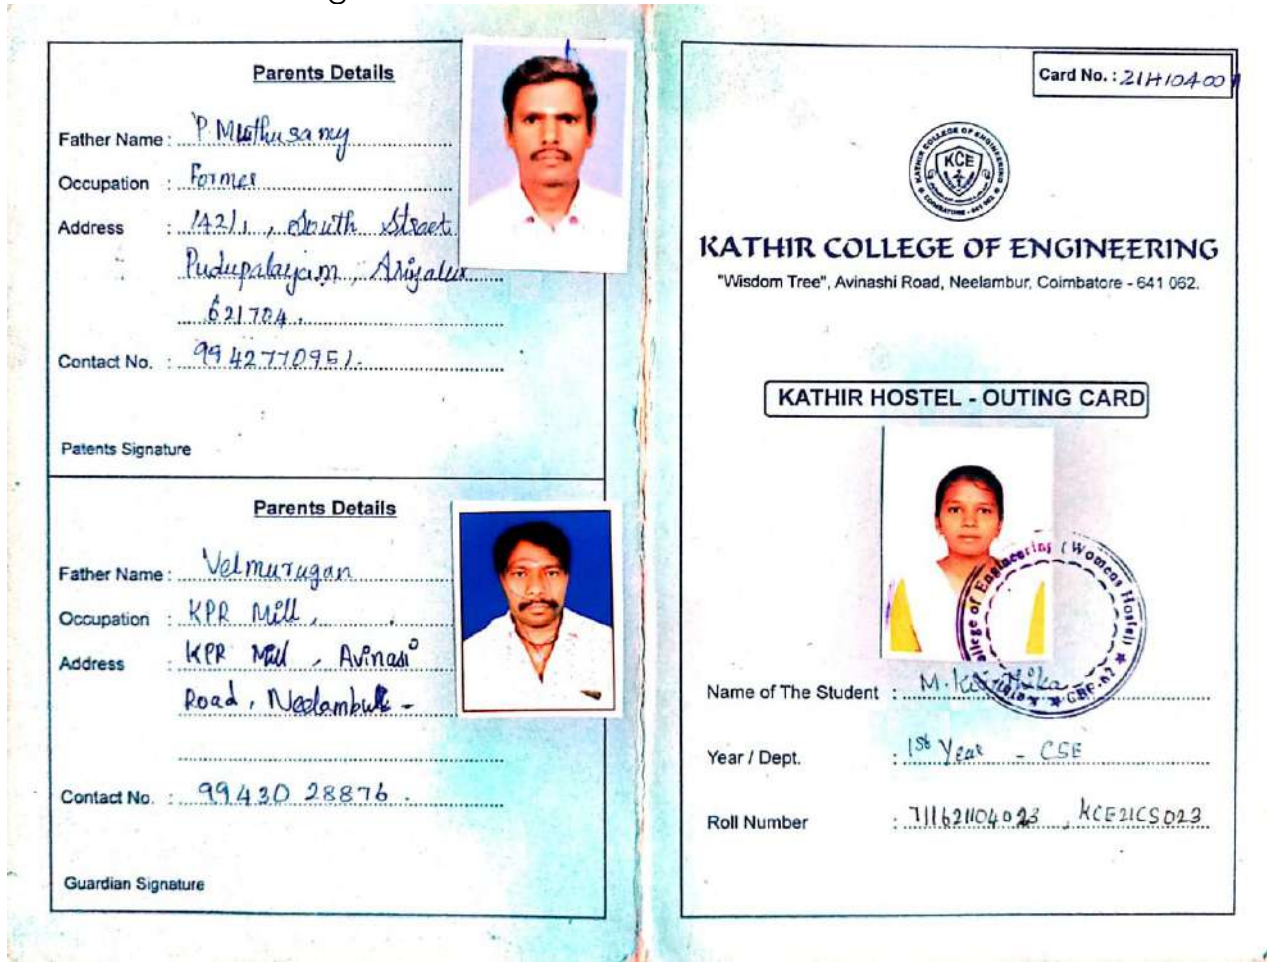 Parents Details
Father Name : P. Muthusamy
Occupation : Former
Address : 142/1, South Street
Pudupalayam, Ariyalur
621704.
Contact No. : 9942770951.
Patents Signature
Parents Details
Father Name : Velmurugan
Occupation : KPR Mill,
Address : KPR Mill, Avinasi
Road, Neelambur -
Contact No. : 99430 28876.
Guardian Signature
Card No. : 21H10400
KCE
KATHIR COLLEGE OF ENGINEERING
COIMBATORE - 641 062
KATHIR COLLEGE OF ENGINEERING
"Wisdom Tree", Avinashi Road, Neelambur, Coimbatore - 641 062.
KATHIR HOSTEL - OUTING CARD
College of Engineering (Womens Hostel) ★ CBE-62 ★
Name of The Student : M.
Year / Dept. : 1st Year - CSE
Roll Number : 711621104023, KCE21CS023